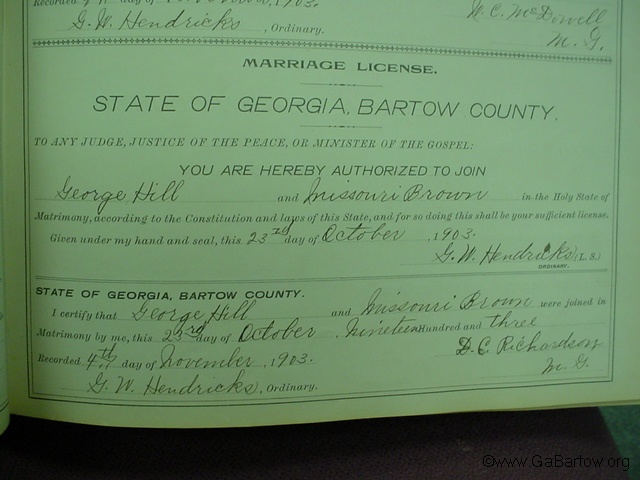 Recorded 4th day of November 1903. W. C. McDowell
G. W. Hendricks, Ordinary. M. G.
MARRIAGE LICENSE.
STATE OF GEORGIA, BARTOW COUNTY.
TO ANY JUDGE, JUSTICE OF THE PEACE, OR MINISTER OF THE GOSPEL:
YOU ARE HEREBY AUTHORIZED TO JOIN
George Hill and Missouri Brown in the Holy State of
Matrimony, according to the Constitution and laws of this State, and for so doing this shall be your sufficient license.
Given under my hand and seal, this 23rd day of October, 1903.
G. W. Hendricks (L. S.)
ORDINARY.
STATE OF GEORGIA, BARTOW COUNTY.
I certify that George Hill and Missouri Brown were joined in
Matrimony by me, this 23rd day of October Nineteen Hundred and three
D. C. Richardson
Recorded 4th day of November, 1903. M. G.
G. W. Hendricks, Ordinary.
©www.GaBartow.org